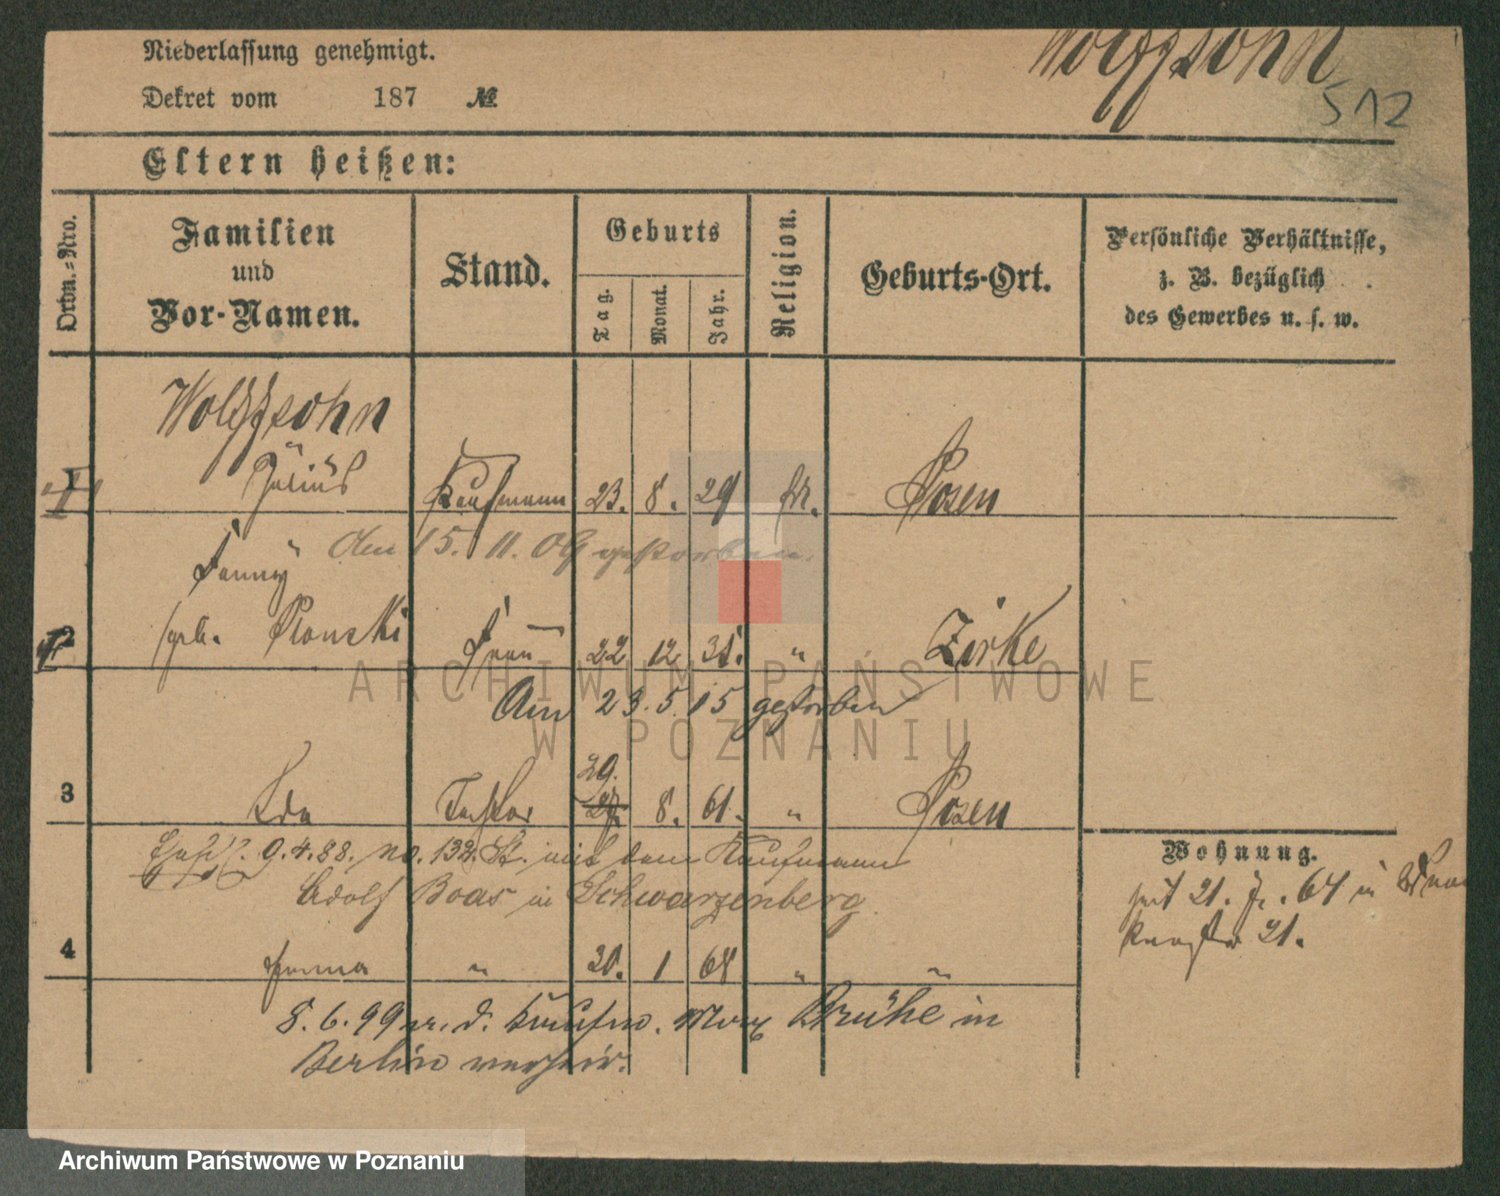 Niederlassung genehmigt.
Wolffsohn
Dekret vom 187 №
512
Eltern heißen:
Ordn.=Nro.
Familien und Vor-Namen.
Stand.
Geburts
Tag.
Monat.
Jahr.
Religion.
Geburts-Ort.
Persönliche Verhältnisse,
z. B. bezüglich
des Gewerbes u. s. w.
Wolffsohn
1 Julius Kaufmann 23. 8. 29 Posen
den 15. 11. 09 gestorben.
Fanny
2 geb. Plonski Frau 22 12 31. " Zirke
Am 23. 5. 15 gestorben
29.
3 Ida Tochter 27. 8. 61. " Posen
9. 4. 88. No. 132. St. mit dem Kaufmann
Adolf Boas in Schwarzenberg
4 " 20. 1 64 " "
8. 6. 99 m. d. Kaufm. Max Brühe in
Berlin verheir.
Wohnung.
seit 21. 64 in
21.
ARCHIWUM PAŃSTWOWE
W POZNANIU
Archiwum Państwowe w Poznaniu